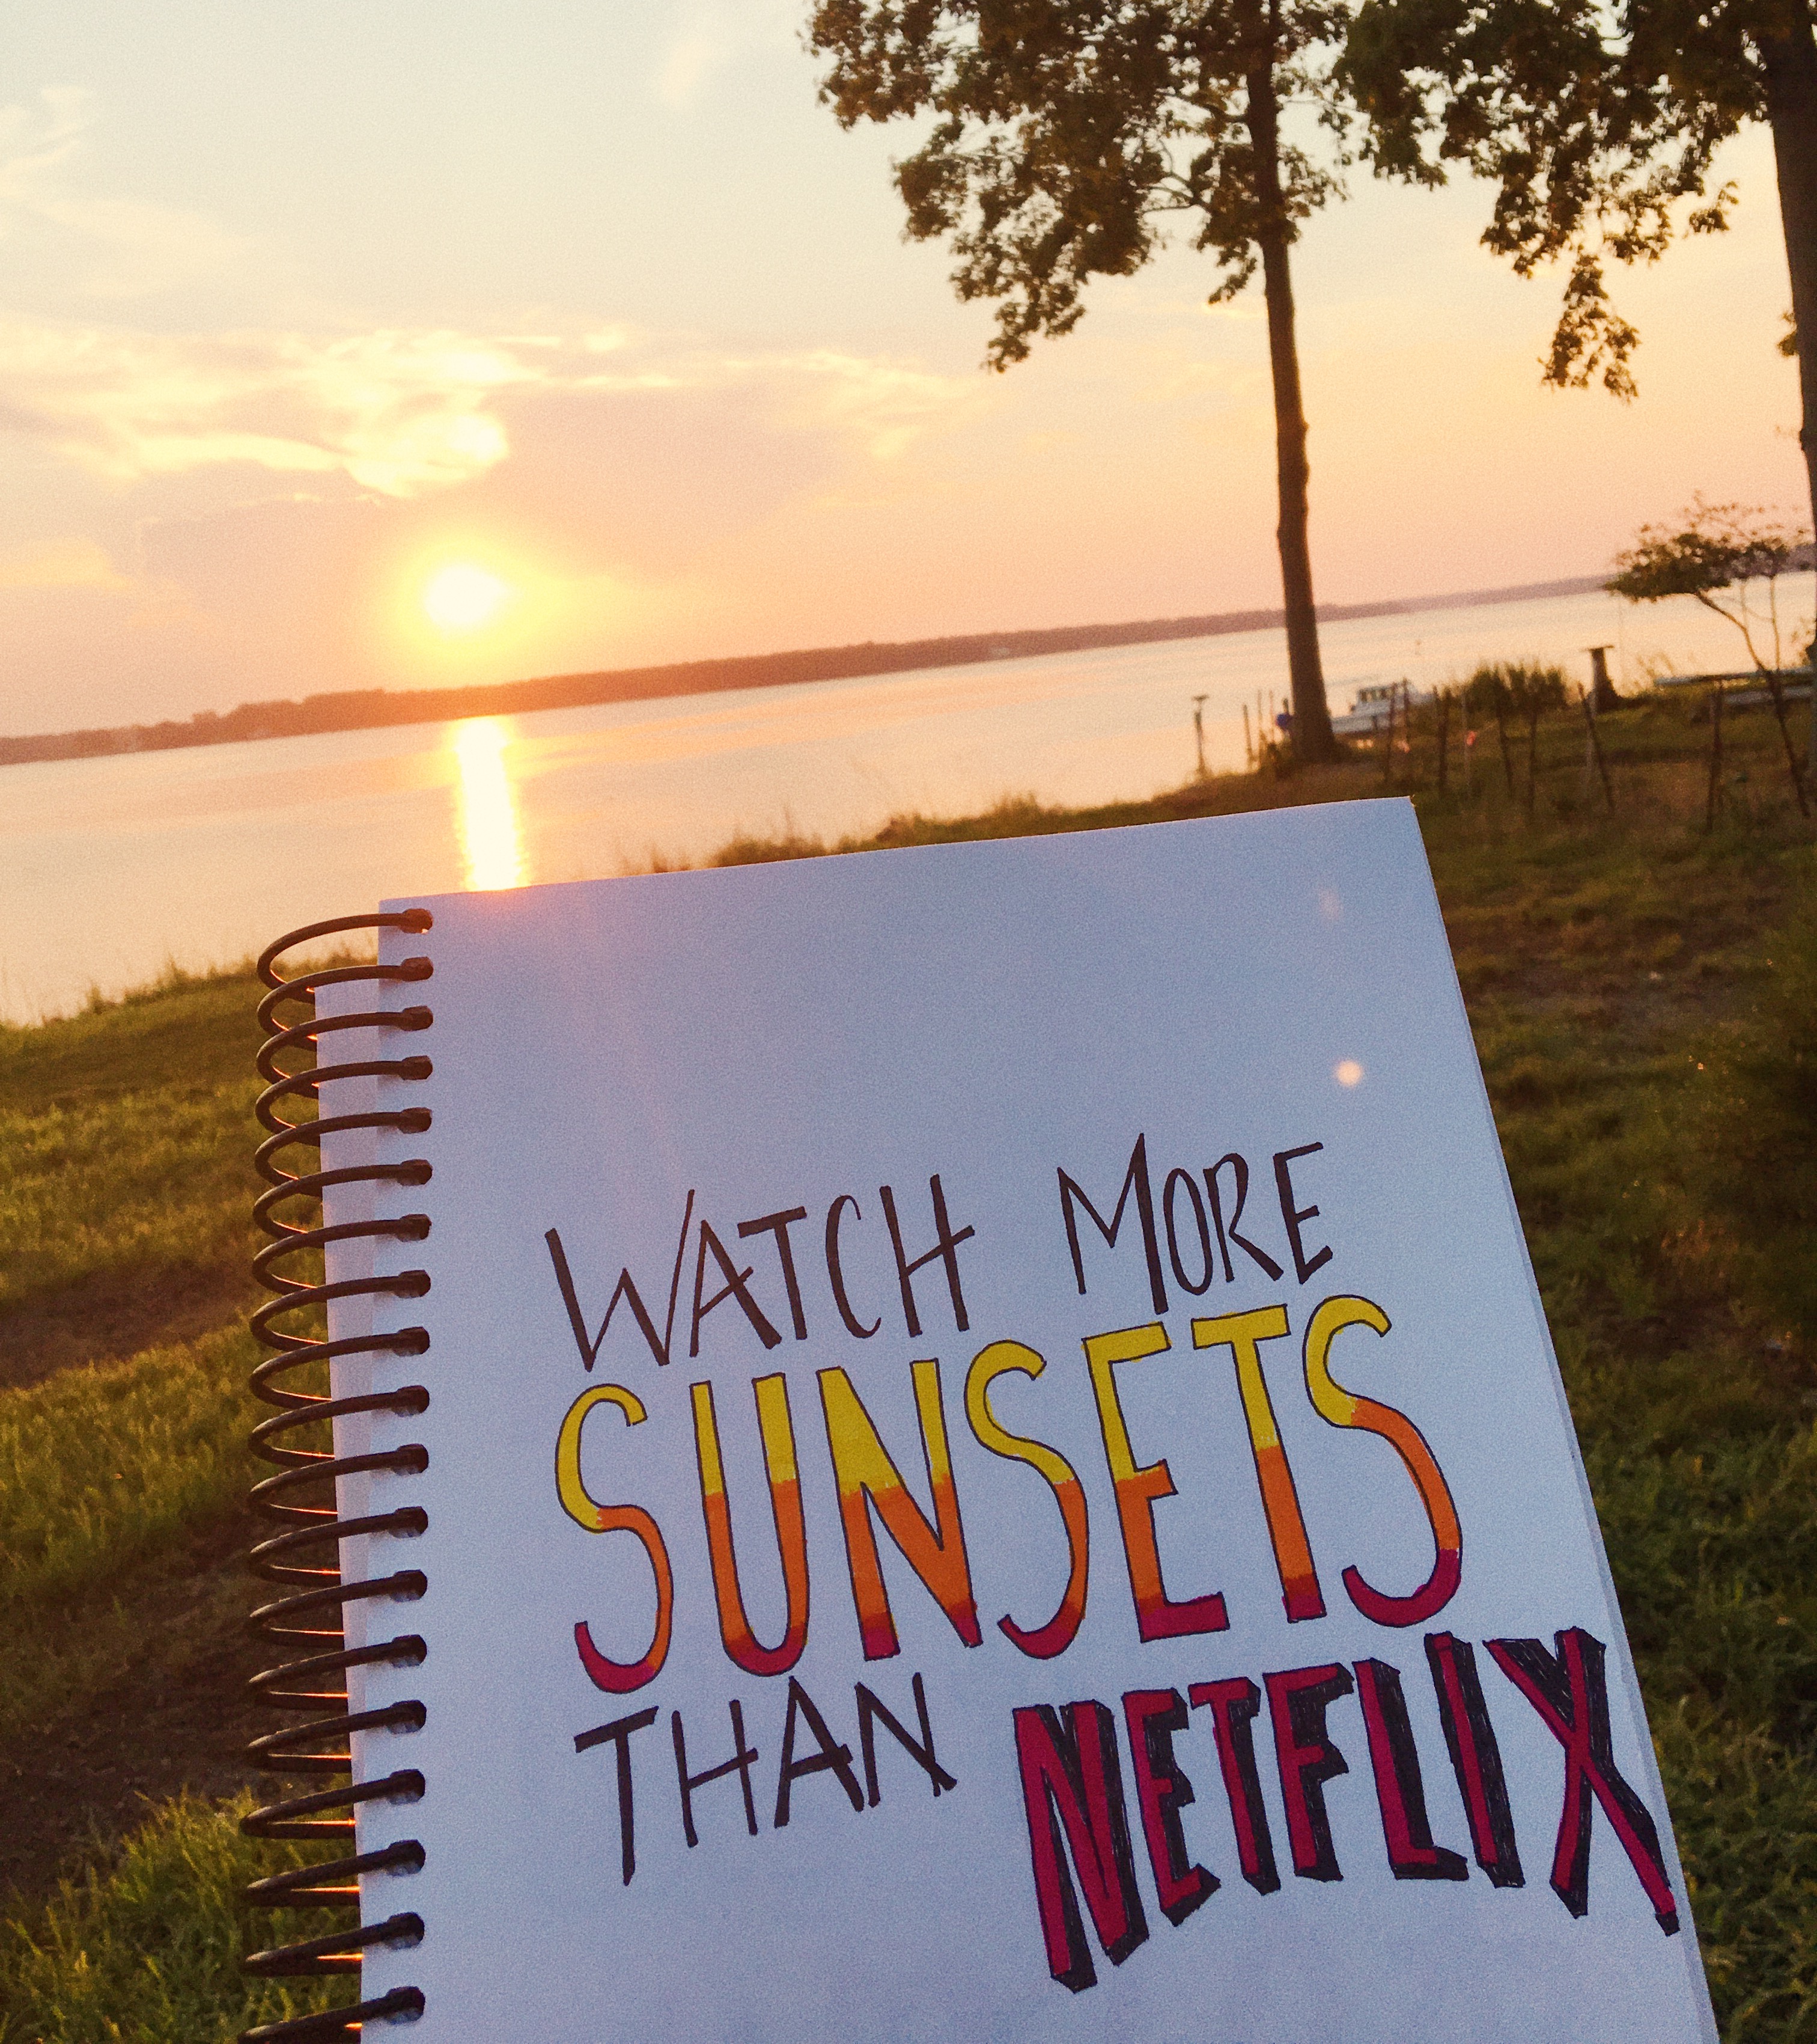 WATCH MORE
SUNSETS
THAN NETFLIX